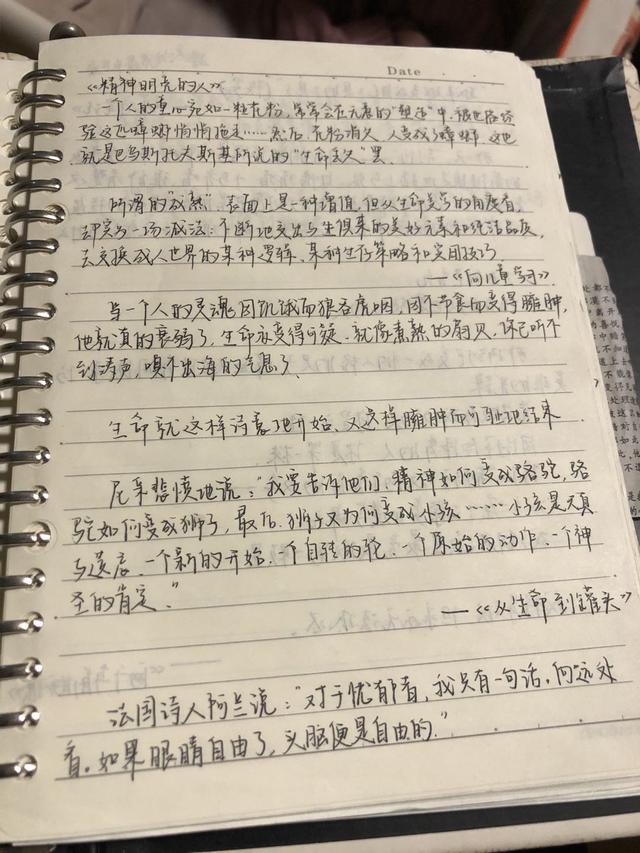 Date
《精神明亮的人》
一个人的童心宛如一粒花粉，常常会在无意的“塑造”中，被世侩经
验这匹蟑螂悄悄拖走……然后，花粉消失，人变成了蟑螂。这也
就是巴乌斯托夫斯基所说的“生命丢失”罢.
所谓的“成熟”，表面上是一种增值，但从生命美学的角度看，
却实为一场减法：不断地交出与生俱来的美好元素和纯洁品质，
去交换成人世界的某种逻辑、某种生存策略和实用技巧.
——《向儿童学习》.
当一个人的灵魂因饥饿而狼吞虎咽，因不节食而变得臃肿，
他就真的衰弱了，生命亦变得可疑、就像煮熟的扇贝，你已听不
到涛声，嗅不出海的气息了.
生命就这样诗意地开始、又这样臃肿而可耻地结束
尼采悲愤地说：“我要告诉他们，精神如何变成骆驼，骆
驼如何变成狮子，最后，狮子又为何变成小孩……小孩是天真
与遗忘、一个新的开始、一个自转的轮、一个原始的动作、一个神
圣的肯定.”
——《从生命到罐头》
法国诗人阿兰说：“对于忧郁者，我只有一句话，向远处
看。如果眼睛自由了，头脑便是自由的.”